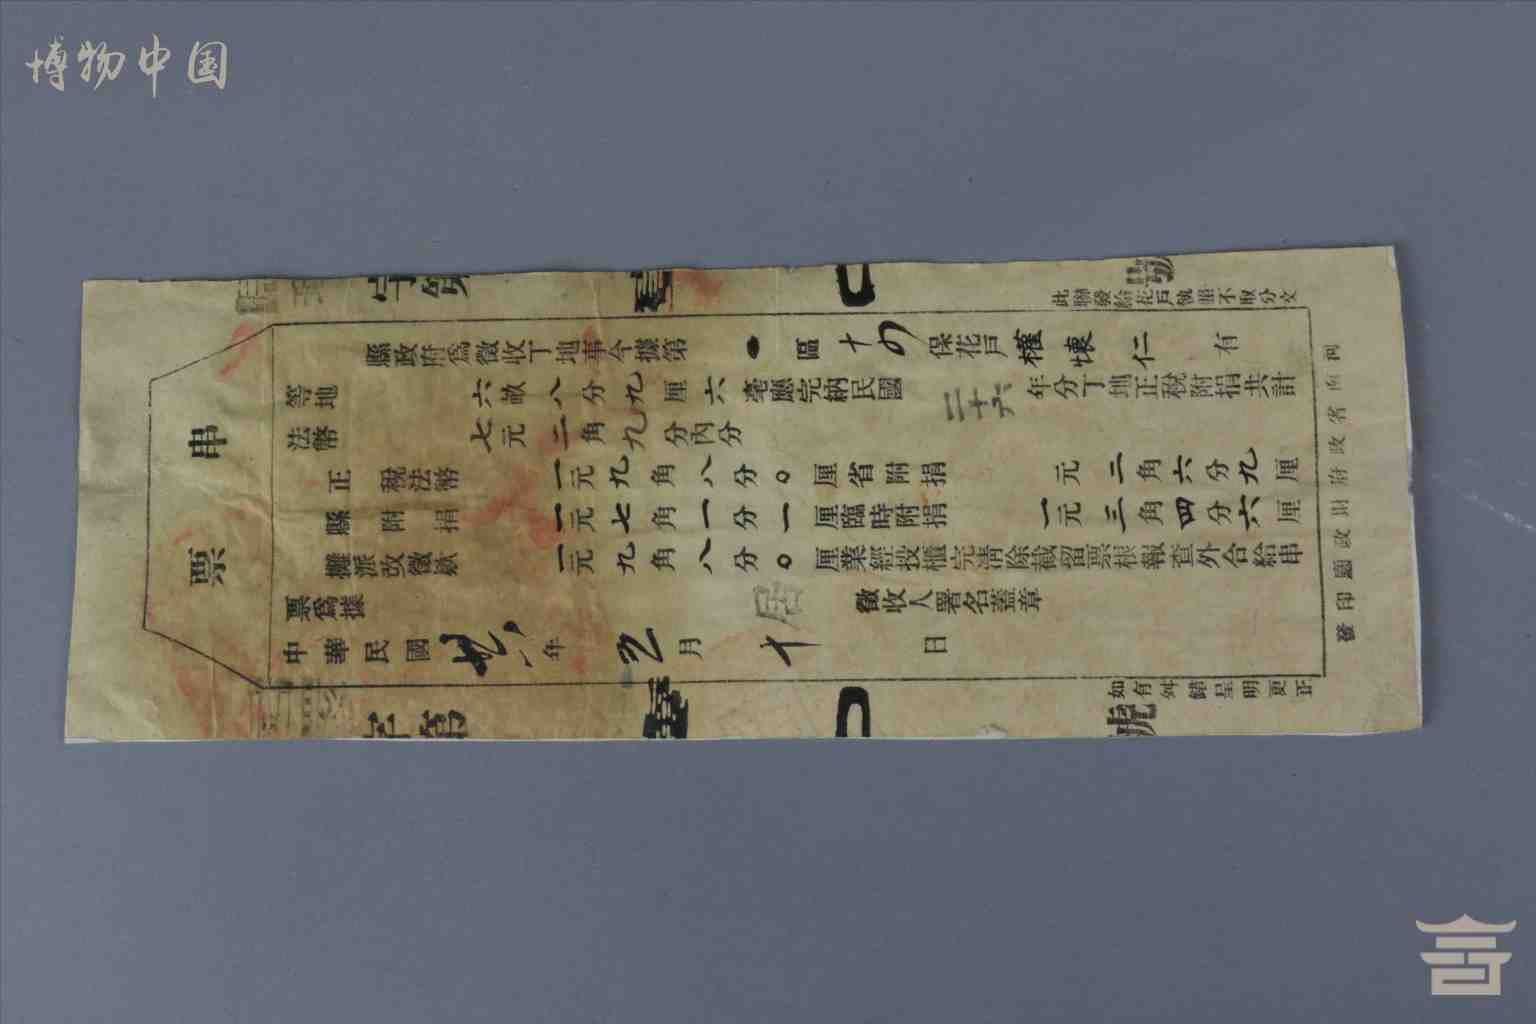 博物中国
串票
字第
號
此聯發給花戶執照不取分文
縣政府為徵收丁地事今據第
區十四保花戶權懷仁有
等地六畝八分九厘六毫應完納民國二十六年分丁地正稅附捐共計
法幣七元二角九分內分
正稅法幣一元九角八分〇厘省附捐元二角六分九厘
縣附捐一元七角一分一厘臨時附捐一元三角四分六厘
攤派改徵款一元九角八分〇厘業經投櫃完清除截留票根報查外合給串
票為據
徵收人署名蓋章
中華民國廿六年五月十日
字第
號
如有舛錯呈明更正
省政府財政廳印發